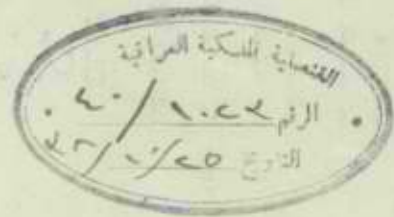 القنصلية الملكية العراقية
الرقم ٤٠/١٠٢٣
التاريخ ٢٥/١٠/